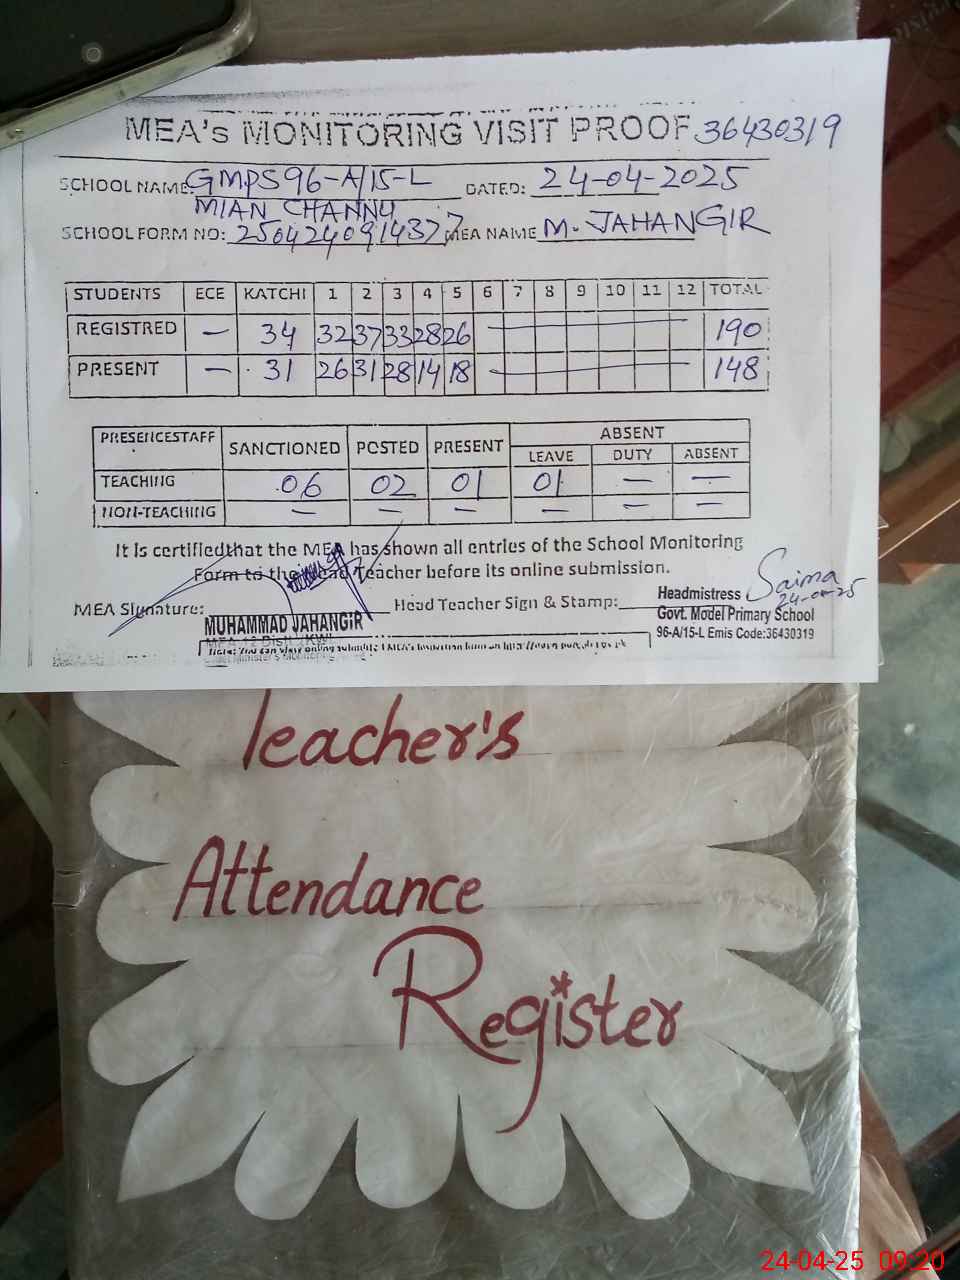 MEA's MONITORING VISIT PROOF 36430319
SCHOOL NAME: GMPS 96-A/15-L DATED: 24-04-2025
MIAN CHANNU
SCHOOL FORM NO: 2504240914377 MEA NAME M. JAHANGIR
STUDENTS ECE KATCHI 1 2 3 4 5 6 7 8 9 10 11 12 TOTAL
REGISTRED — 34 32 37 33 28 26 — 190
PRESENT — 31 26 31 28 14 18 — 148
PRESENCESTAFF SANCTIONED POSTED PRESENT ABSENT
LEAVE DUTY ABSENT
TEACHING 06 02 01 01 — —
NON-TEACHING — — — — — —
It is certifiedthat the MEA has shown all entries of the School Monitoring
Form to the Head Teacher before its online submission.
MEA Signature: Head Teacher Sign & Stamp: Headmistress Saima
24-04-25
MUHAMMAD JAHANGIR Govt. Model Primary School
96-A/15-L Emis Code:36430319
Teacher's
Attendance
Register
24-04-25 09:20